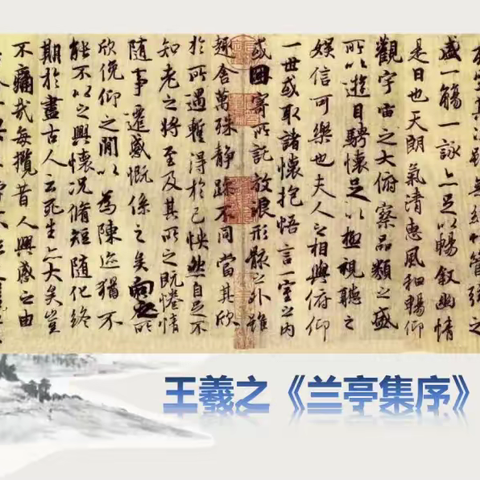 盛一觴一詠亦足以暢叙幽情
是日也天朗氣清惠風和暢仰
觀宇宙之大俯察品類之盛
所以遊目騁懷足以極視聽之
娛信可樂也夫人之相與俯仰
一世或取諸懷抱悟言一室之內
或因寄所託放浪形骸之外雖
趣舍萬殊靜躁不同當其欣
於所遇暫得於己怏然自足不
知老之將至及其所之既惓情
隨事遷感慨係之矣向之所
欣俛仰之間以為陳迹猶不
能不以之興懷況脩短隨化終
期於盡古人云死生亦大矣豈
不痛哉每攬昔人興感之由
王羲之《兰亭集序》